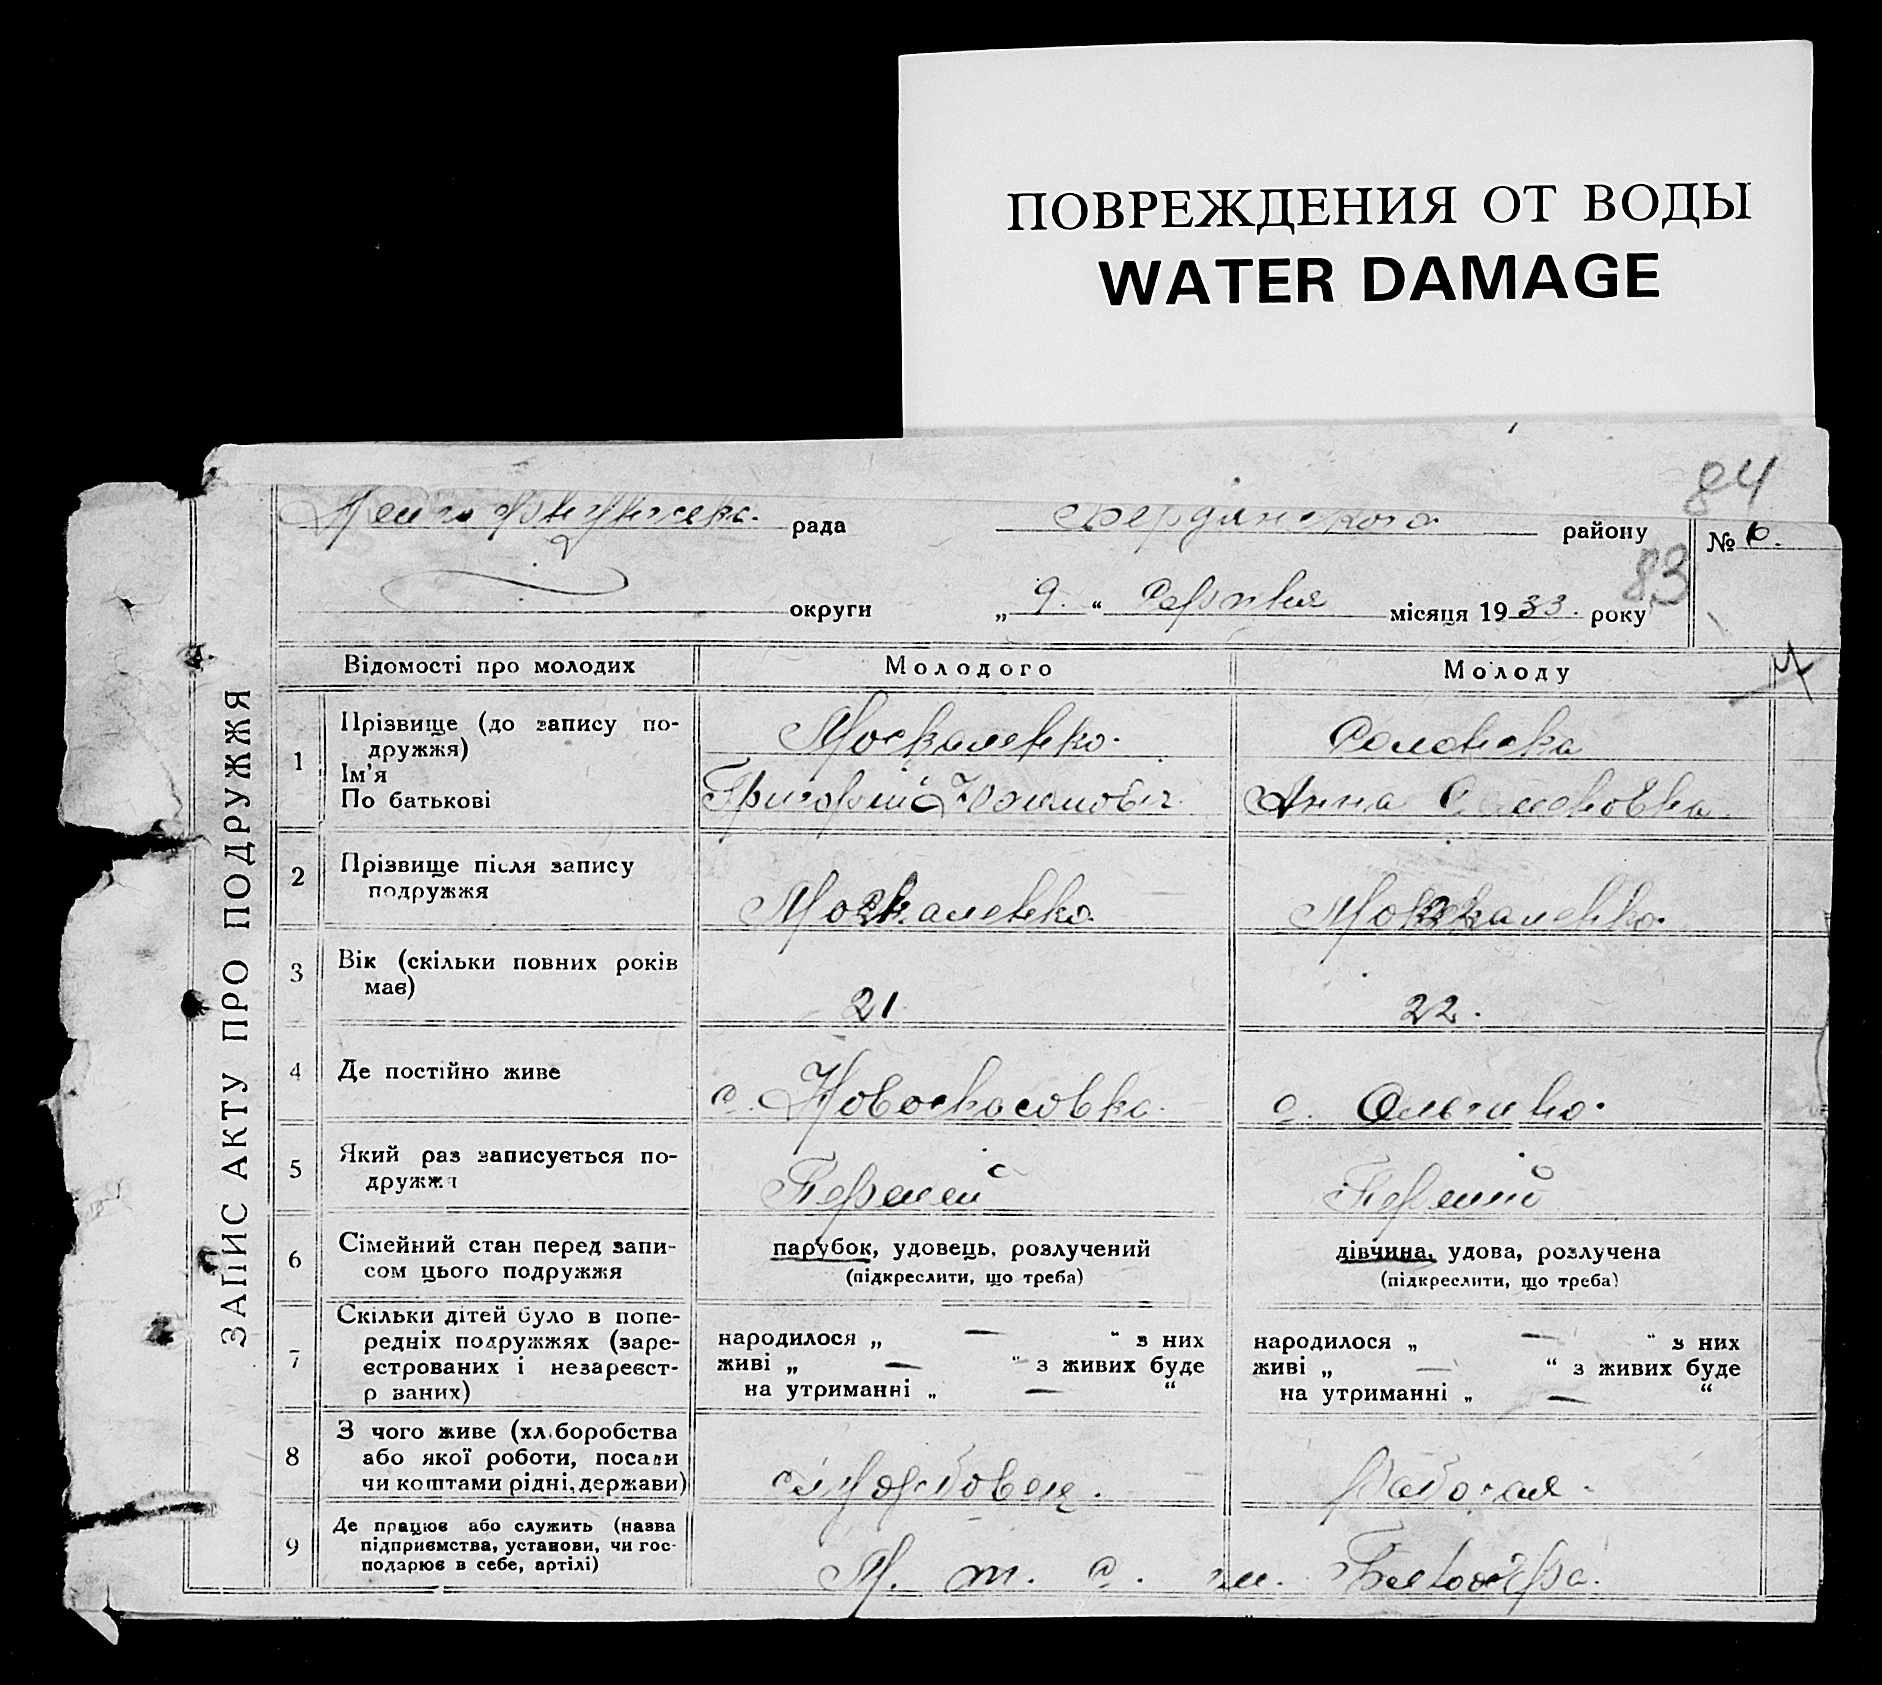 ПОВРЕЖДЕНИЯ ОТ ВОДЫ
WATER DAMAGE
84
рада Бердянского району № 6.
83
округи „ 9. “ Серпня місяця 1933. року
ЗАПИС АКТУ ПРО ПОДРУЖЖЯ
Відомості про молодих Молодого Молоду
1 Прізвище (до запису по-
дружжя)
Ім'я
По батькові
Москаленко.
Григорій Юхимович.
Анна Семеновна
2 Прізвище після запису
подружжя
Москаленко.
Москаленко.
3 Вік (скільки повних років
має)
21
22.
4 Де постійно живе
с. Новоспасовка.
с. Ольгино.
5 Який раз записується по-
дружжя
Перший
Перший
6 Сімейний стан перед запи-
сом цього подружжя
парубок, удовець, розлучений
(підкреслити, що треба)
дівчина, удова, розлучена
(підкреслити, що треба)
7 Скільки дітей було в попе-
редніх подружжях (заре-
єстрованих і незареєст-
р ваних)
народилося „ — “ з них
живі „ — “ з живих буде
на утриманні „ — “
народилося „ — “ з них
живі „ — “ з живих буде
на утриманні „ — “
8 З чого живе (хл.боробства
або якої роботи, посади
чи коштами рідні, держави)
Рабочая.
9 Де працює або служить (назва
підприємства, установи, чи гос-
подарює в себе, артілі)
М. т. с. им.